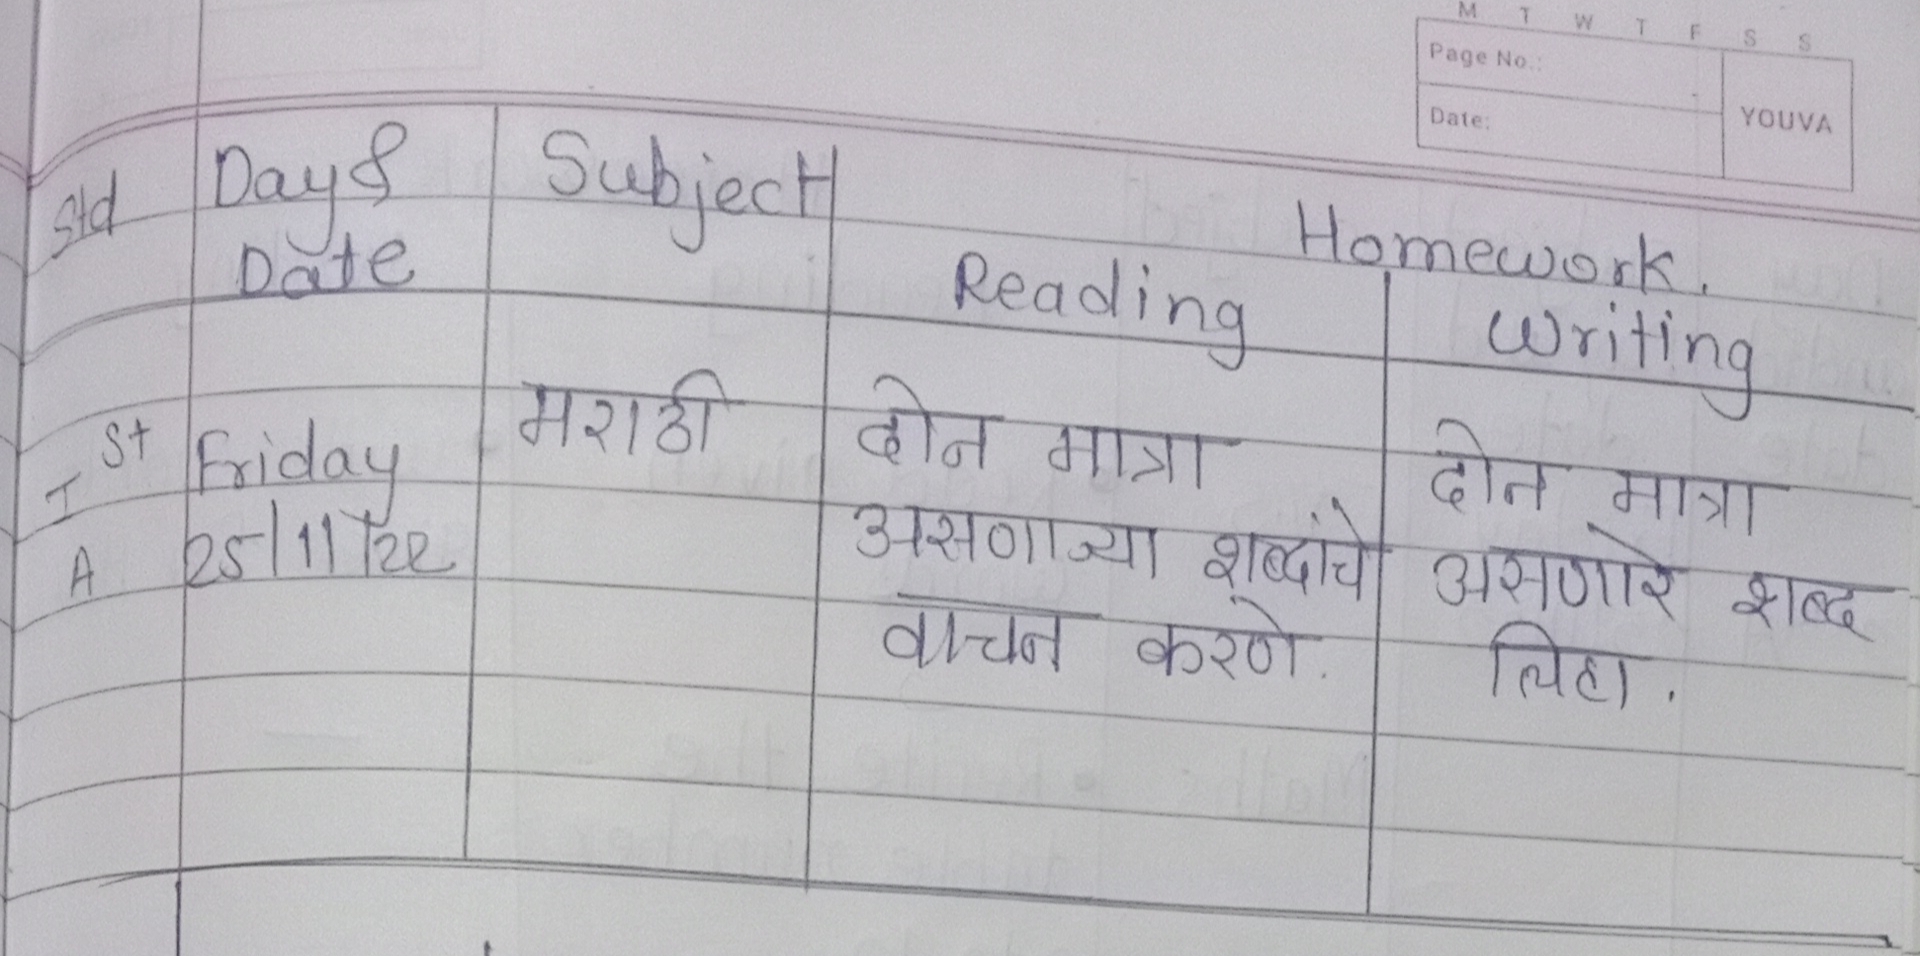 M T W T F S S
Page No.:
Date:
YOUVA
Std
Day &
Date
Subject
Homework.
Reading
Writing
I st
A
Friday
25/11/22
मराठी
दोन मात्रा
असणाज्या शब्दांचे
वाचन करणे.
दोन मात्रा
असणारे शब्द
लिहा.